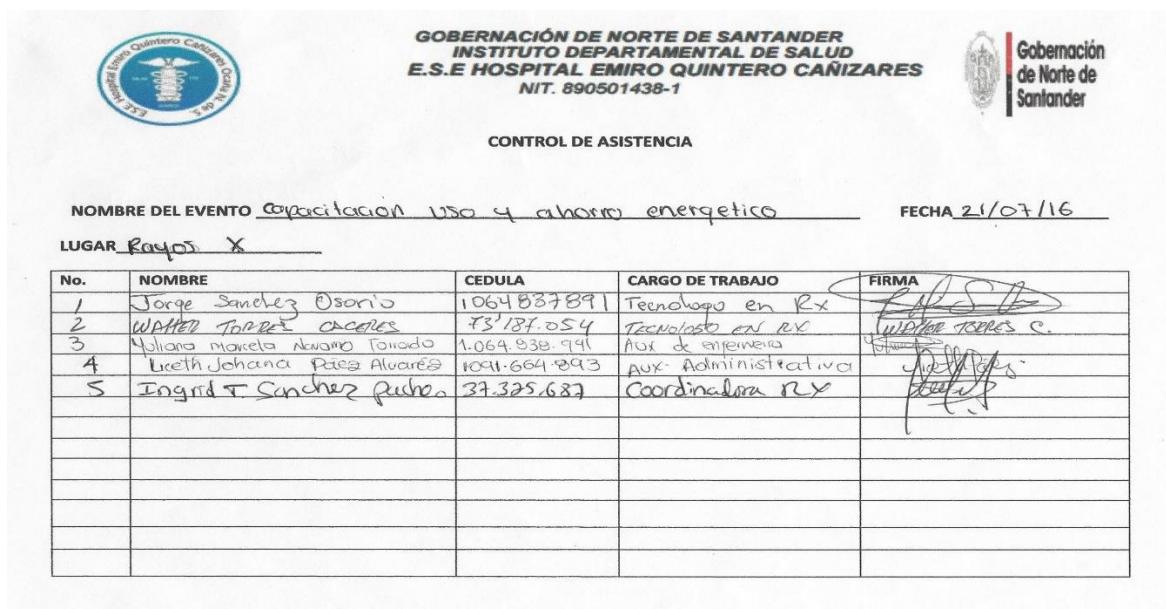 E.S.E Hospital Emiro Quintero Cañizares Ocaña N. de S.
GOBERNACIÓN DE NORTE DE SANTANDER
INSTITUTO DEPARTAMENTAL DE SALUD
E.S.E HOSPITAL EMIRO QUINTERO CAÑIZARES
NIT. 890501438-1
Gobernación
de Norte de
Santander
CONTROL DE ASISTENCIA
NOMBRE DEL EVENTO Capacitación uso y ahorro energetico FECHA 21/07/16
LUGAR Rayos X
No. NOMBRE CEDULA CARGO DE TRABAJO FIRMA
1 Jorge Sanchez Osorio 1064837891 Tecnologo en Rx
2 WALTER TORRES CACERES 73'187.054 TECNOLOGO EN RX WALTER TORRES C.
3 Yuliana Marcela Navarro Torrado 1.064.838.991 Aux de enfermeria
4 Liceth Johana Páez Alvaréz 1091.664.893 Aux. Administrativa
5 Ingrid T. Sanchez 37.325.687 Coordinadora RX